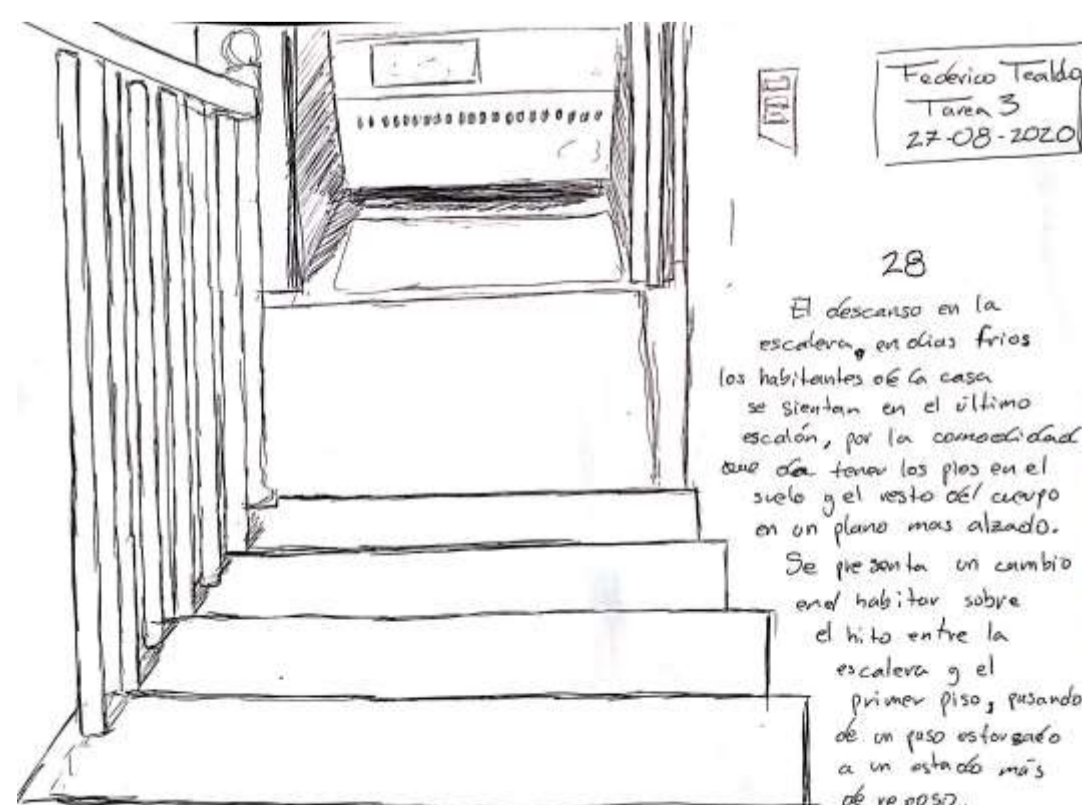 Federico Tealdo
Tarea 3
27-08-2020
28
El descanso en la
escalera, en dias frios
los habitantes de la casa
se sientan en el último
escalón, por la comodidad
que da tener los pies en el
suelo y el resto del cuerpo
en un plano mas alzado.
Se presenta un cambio
en el habitar sobre
el hito entre la
escalera y el
primer piso, pasando
de un paso esforzado
a un estado más
de reposo.